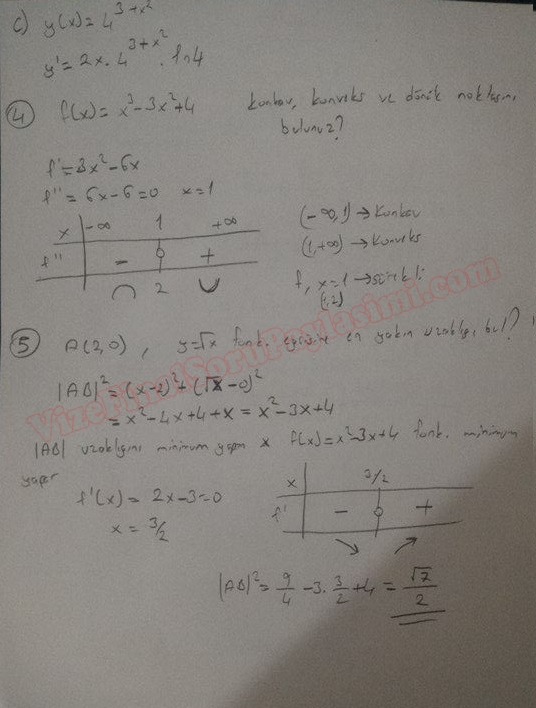 c) y(x)=4^{3+x^2}
y'=2x.4^{3+x^2}.ln4
4 f(x)=x^3-3x^2+4 konkav, konveks ve dönük noktasını
bulunuz?
f'=3x^2-6x
f''=6x-6=0 x=1
x -∞ 1 +∞
f'' - 0 +
2
(-∞,1)→konkav
(1,+∞)→konveks
f, x=1→sürekli
(1,2)
VizeFinalSoruPaylasimi.com
5 A(2,0), y=√x fonk. eğrisine en yakın uzaklığı bul?
|AB|^2=(x-2)^2+(√x-0)^2
=x^2-4x+4+x=x^2-3x+4
|AB| uzaklığını minimum yapan x f(x)=x^2-3x+4 fonk. minimum
yapar
f'(x)=2x-3=0
x=3/2
x 3/2
f' - 0 +
|AB|^2=9/4-3.3/2+4=√7/2